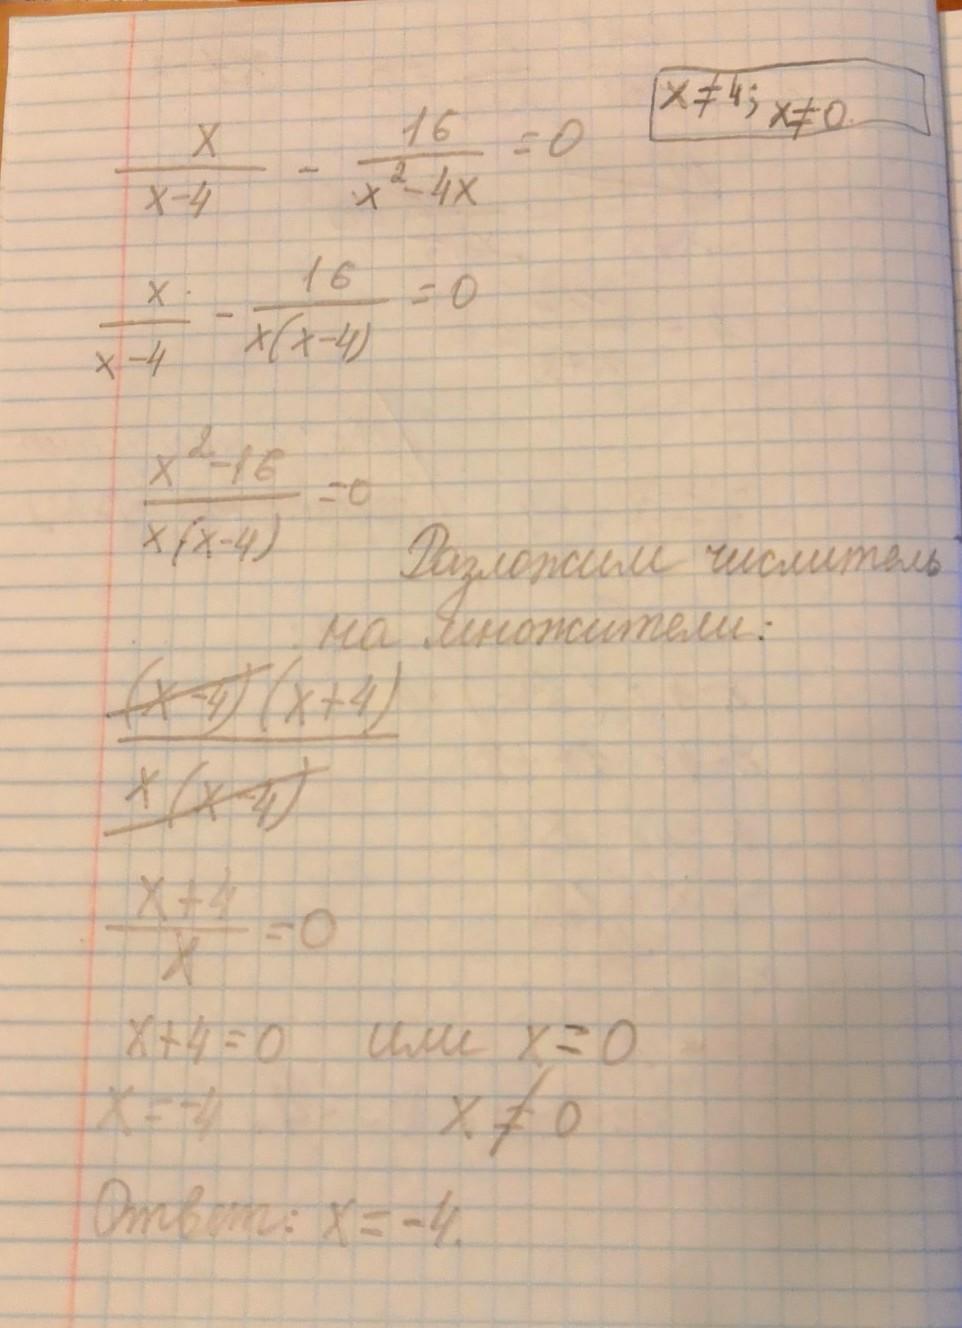 x≠4; x≠0
x/(x-4) - 16/(x²-4x) =0
x/(x-4) - 16/(x(x-4)) =0
(x²-16)/(x(x-4)) =0
Разложим числитель
на множители:
(x-4)(x+4)/(x(x-4))
(x+4)/x =0
x+4=0 или x=0
x=-4 x≠0
Ответ: x=-4.